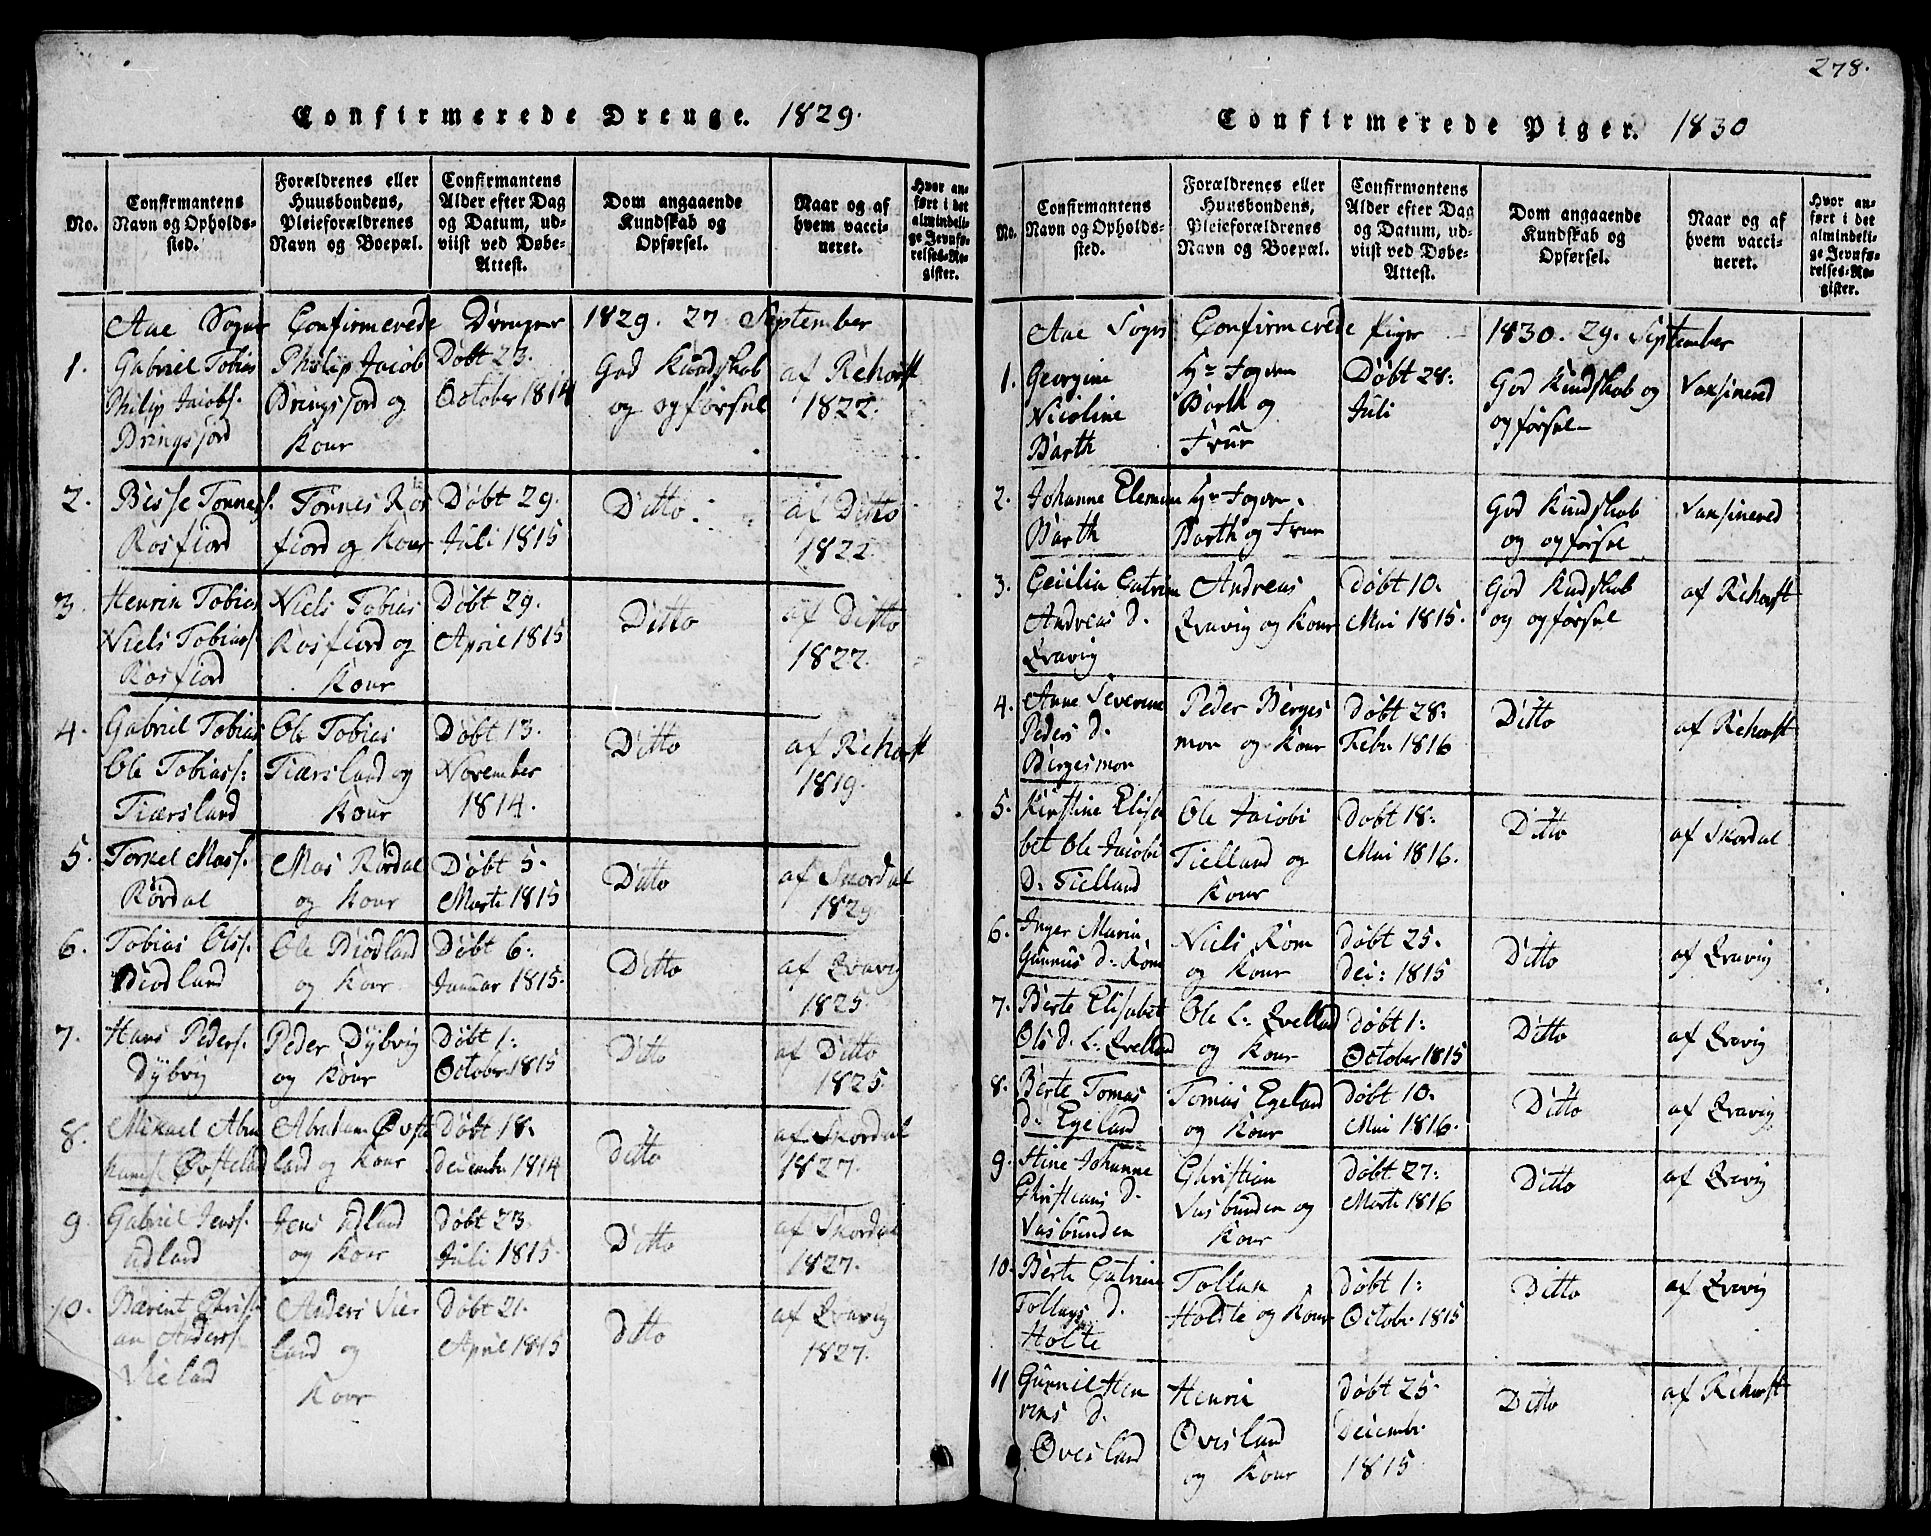 Confirmerede Drenge. 1829.
No.
Confirmantens
Navn og Opholds-
sted.
Forældrenes eller
Huusbondens,
Pleieforældrenes
Navn og Boepæl.
Confirmantens
Alder efter Dag
og Datum, ud-
viist ved Døbe-
Attest.
Dom angaaende
Kundskab og
Opførsel.
Naar og af
hvem vacci-
neret.
Hvor an-
ført i det
almindeli-
ge Jevnfø-
relses-Re-
gister.
Aae Sogns Confirmerede Drenger 1829. 27 September
1.
Gabriel Tobias
Philip Jacobs.
Bringsjord
Philip Jacob
Bringsjord og
Kour
Døbt 23.
October 1814
God Kundskab
og opførsel
af Rehorst
1822.
2.
Bisse Tonness.
Rosfiord
Tonnes Ros
fiord og Kour
Døbt 29.
Juli 1815
Ditto
af Ditto
1822
3.
Henrik Tobias
Niels Tobiass.
Rosfiord
Niels Tobias
Rosfiord og
Kour
Døbt 29.
April 1815
Ditto
af Ditto
1822.
4.
Gabriel Tobias
Ole Tobiass:
Tiærsland
Ole Tobias
Tiærsland og
Kour
Døbt 13.
November
1814.
Ditto
af Rehorst
1819.
5.
Torkel Mass.
Rørdal
Mas Rørdal
og Kour
Døbt 5.
Marti 1815
Ditto
af Skordal
1829
6.
Tobias Olss.
Biodland
Ole Biodland
og Kour
Døbt 6.
Januar 1815.
Ditto
af Qvavig
1825.
7.
Hans Peders.
Dybvig
Peder Dybvig
og Kour
Døbt 1:
October 1815
Ditto
af Ditto
1825.
8.
Mikael Abra
hams. Øvsteland
Abraham Øvste
land og Kour
Døbt 18.
December 1814
Ditto
af Skordal
1827.
9.
Gabriel Jenss.
Udland
Jens Udland
og Kour
Døbt 23.
Juli 1815.
Ditto
af Skordal
1827.
10.
Bærent Christi
an Anderss.
Vieland
Anders Vie-
land og
Kour
Døbt 21.
April 1815
Ditto
af Qvavig
1827.
278.
Confirmerede Piger. 1830
No.
Confirmantens
Navn og Opholds-
sted.
Forældrenes eller
Huusbondens,
Pleieforældrenes
Navn og Boepæl.
Confirmantens
Alder efter Dag
og Datum, ud-
viist ved Døbe-
Attest.
Dom angaaende
Kundskab og
Opførsel.
Naar og af
hvem vacci-
neret.
Hvor an-
ført i det
almindeli-
ge Jevnfø-
relses-Re-
gister.
Aae Sogns Confirmerede Piger 1830. 29. September
1.
Georgine
Nicoline
Barth
Hr Fogden
Barth og
Frue
Døbt 28:
Juli
God Kundskab og
opførsel
Vaxsinered
2.
Johanne Elemine
Barth
Hr Fogden
Barth og Frue
God Kundskab
og opførsel
Vaxsinered
3.
Cecilia Catrine
Andreas d.
Qvavig
Andreas
Qvavig og Kour
Døbt 10.
Mai 1815.
God Kundskab
og opførsel
af Rehorst
4.
Anne Severine
Peders d.
Bergesmon
Peder Berges
mon og Kour
Døbt 28.
Febr. 1816
Ditto
af Rehorst
5.
Kirstine Elisa
bet Ole Jacobs
d. Tielland
Ole Jacobs
Tielland og
Kour
Døbt 18.
Mai 1816.
Ditto
af Skordal
6.
Inger Maria
d. Rom
Niels Rom
og Kour
Døbt 25.
Dec: 1815
Ditto
af Qvavig
7.
Berte Elisabet
Ols d. L: Qvelland
Ole L: Qvelland
og Kour
Døbt 1:
October 1815
Ditto
af Qvavig
8.
Berte Tomas
d. Egeland
Tomas Egeland
og Kour
Døbt 10.
Mai 1816.
Ditto
af Qvavig
9.
Stine Johanne
Christians d.
Vasbunden
Christian
Vasbunden og
Kour
Døbt 27:
Marti 1816
Ditto
af Qvavig
10.
Berte Catrine
Tollags d.
Holte
Tollak
Holdte og Kour
Døbt 1:
Octobr. 1815
Ditto
af Qvavig
11
Gunnil Hen
riks d.
Øvesland
Henrik
Øvesland
og Kour
Døbt 25.
Decembr.
1815
Ditto
af Rehorst